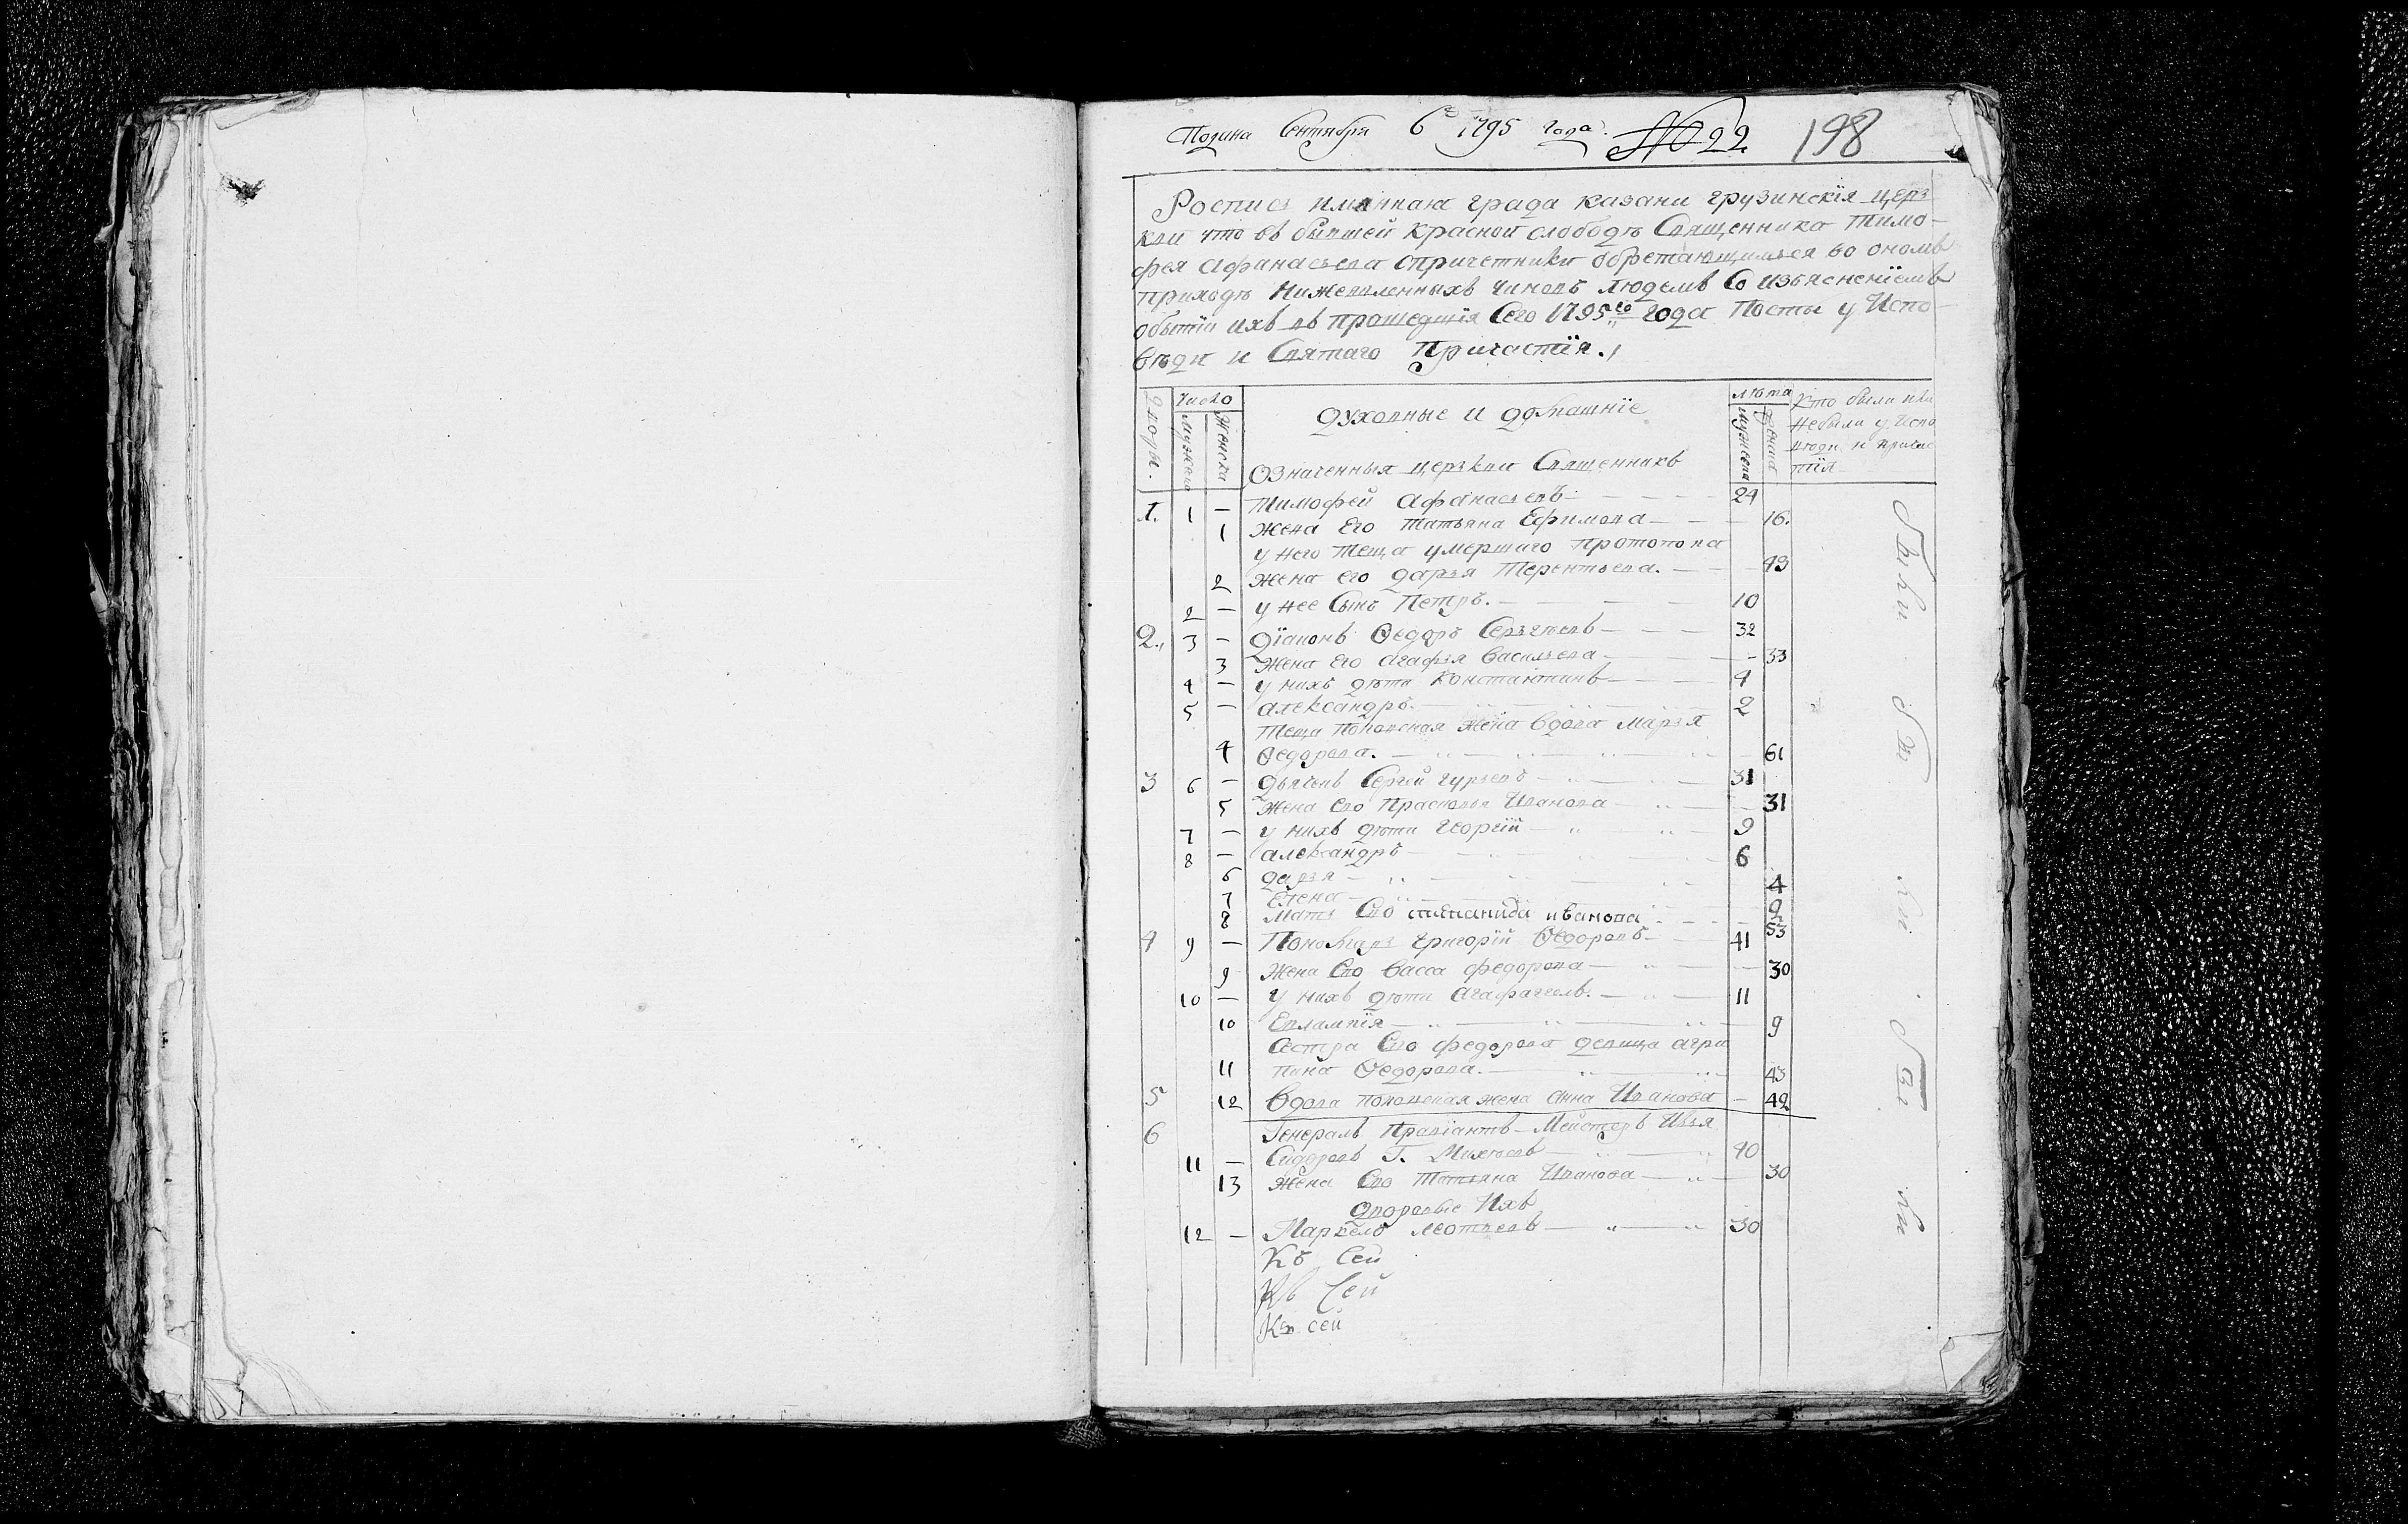 Подана Сентября 6 1795 года. №22 198
Роспись имянная града казани грузинскїя церь
кви что въ бывшей красной слободѣ Священника Тимо-
фея афанасьева спричетники обретающимся во ономъ
приходѣ нижеявленныхъ чиновъ людемъ Со изъясненїемъ
обытїи ихъ въ прошедшїя Сего 1795го года Посты у Испо
вѣди и Святаго Причастїя.
Число лѣта Кто были или
Дворы. мужеска женска духовные и домашнїе мужеска женска не были у Испо
вѣди и причас
Означенныя церькви Священникъ тїя
1. 1 — Тимофей афанасьевъ — 24
1 жена Его татьяна Ефимова — 16.
у него теща умершаго протопопа
2 жена его дарья Терентьева. — 43
2 — у нее Сынъ Петръ. — 10
2. 3 — дїаконъ Ѳедоръ Сергѣевъ — 32
3 жена его агафья васильева — 33
4 — у нихъ дѣти константинъ — 4
5 — александръ. — 2
Теща поповская жена вдова марья
4 Ѳедорова. — 61
3 6 — дьячекъ Сергей гурьевъ — 31
5 жена Его Прасковья Иванова — 31
7 — у нихъ дѣти георгїй — 9
8 — александръ — 6
6 дарья — 4
7 Елена — 2
8 Мать Его степанида иванова 53
4 9 — Пономарь григорїй Ѳедоровъ — 41
9 жена Его васса федорова — 30
10 — у нихъ дѣти агафаггелъ. — 11
10 Евлампїя — 9
Сестра Его федорова девица агри
11 пина Ѳедорова. — 43
5 12 вдова поповская жена анна Иванова — 42
6 Генералъ Провїантъ-Мейстеръ Илья
11 — Сидоровъ Г. Михѣевъ — 40
13 жена Его Татьяна Иванова — 30
дворовые Ихъ
12 — Маркелъ — 30
Къ Сей
Къ Сей
Къ сей